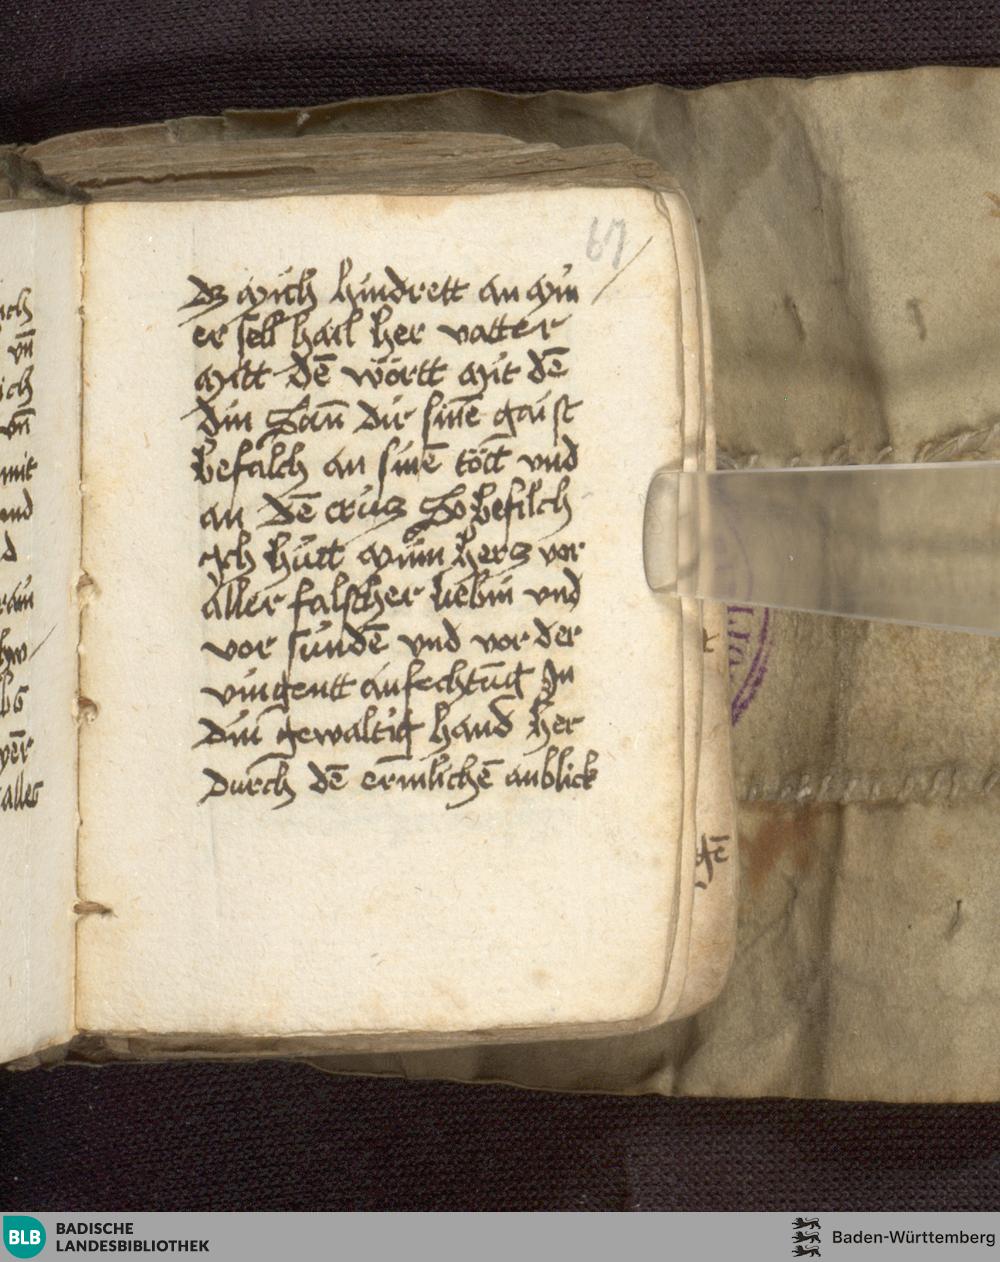 67
dz mich hindrett an min
er sell hail her vatter
mitt dē wortt mit dē
din Sun̄ dir sinē gaist
befalch an sinē tott vnd
an dē crücz So befilch
ich hütt minn hercz vor
aller falscher liebin vnd
vor sündē vnd vor der
vingentt anfechtūg In
din gewaltig hand her
durch dē ermlichē anblick
vn̄
vn̄
mit
alles
BLB
BADISCHE
LANDESBIBLIOTHEK
Baden-Württemberg